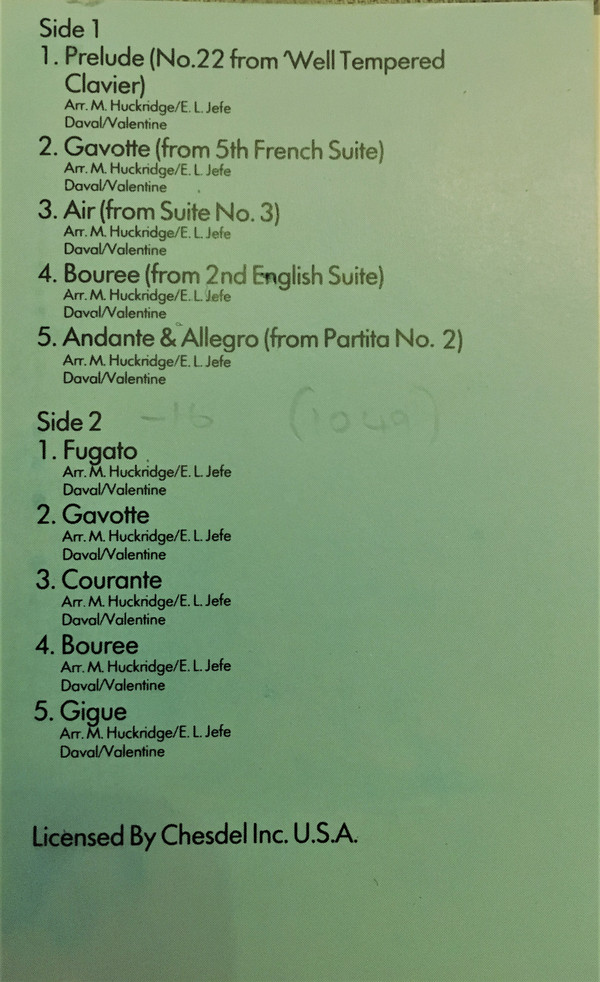 Side 1
1. Prelude (No.22 from 'Well Tempered
Clavier)
Arr. M. Huckridge/E. L. Jefe
Daval/Valentine
2. Gavotte (from 5th French Suite)
Arr. M. Huckridge/E. L. Jefe
Daval/Valentine
3. Air (from Suite No. 3)
Arr. M. Huckridge/E. L. Jefe
Daval/Valentine
4. Bouree (from 2nd English Suite)
Arr. M. Huckridge/E. L. Jefe
Daval/Valentine
5. Andante & Allegro (from Partita No. 2)
Arr. M. Huckridge/E. L. Jefe
Daval/Valentine
Side 2
1. Fugato
Arr. M. Huckridge/E. L. Jefe
Daval/Valentine
2. Gavotte
Arr. M. Huckridge/E. L. Jefe
Daval/Valentine
3. Courante
Arr. M. Huckridge/E. L. Jefe
Daval/Valentine
4. Bouree
Arr. M. Huckridge/E. L. Jefe
Daval/Valentine
5. Gigue
Arr. M. Huckridge/E. L. Jefe
Daval/Valentine
Licensed By Chesdel Inc. U.S.A.